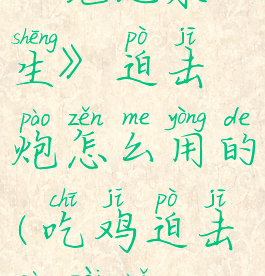 shēng pò jī
生》 迫击
pào zěn me yòng de
炮怎么用的
chī jī pò jī
(吃鸡迫击